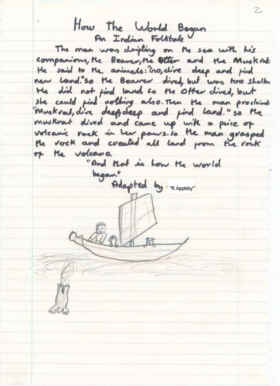 2
How The World Began
An Indian Folktale
The man was drifting on the sea with his
companions, the Beaver, the Otter and the Muskrat
He said to the animals: "Go, dive deep and find
new land." So the Beaver dived, but was too shallow
He did not find land. So the Otter dived, but
she could find nothing also. Then the man proclaimed
"Muskrat, dive deep, deep and find land." So the
muskrat dived and came up with a peice of
volcanic rock in her paws. So the man grasped
the rock and created all land from the rock
of the volcano.
"And that is how the world
began"
Adapted by